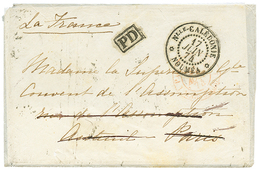 La France
PD
Nlle CALEDONIE
17
JUIN
NOUMEA
Madame la Supre Gle
Couvent de l'Assomption
rue de l'Assomption
Auteuil Paris